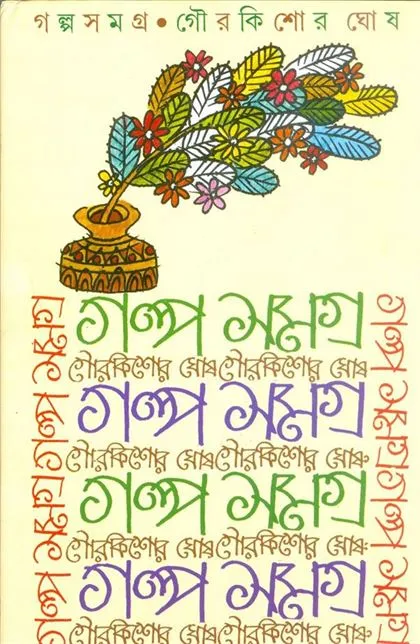 গল্পসমগ্র • গৌরকিশোর ঘোষ
গল্প সমগ্র
গৌরকিশোর ঘোষ গৌরকিশোর ঘোষ
গল্প সমগ্র
গৌরকিশোর ঘোষ গৌরকিশোর ঘোষ
গল্প সমগ্র
গৌরকিশোর ঘোষ গৌরকিশোর ঘোষ
গল্প সমগ্র
গৌরকিশোর ঘোষ গৌরকিশোর ঘোষ
গল্প সমগ্র গল্প সমগ্র
গল্প সমগ্র গল্প সমগ্র